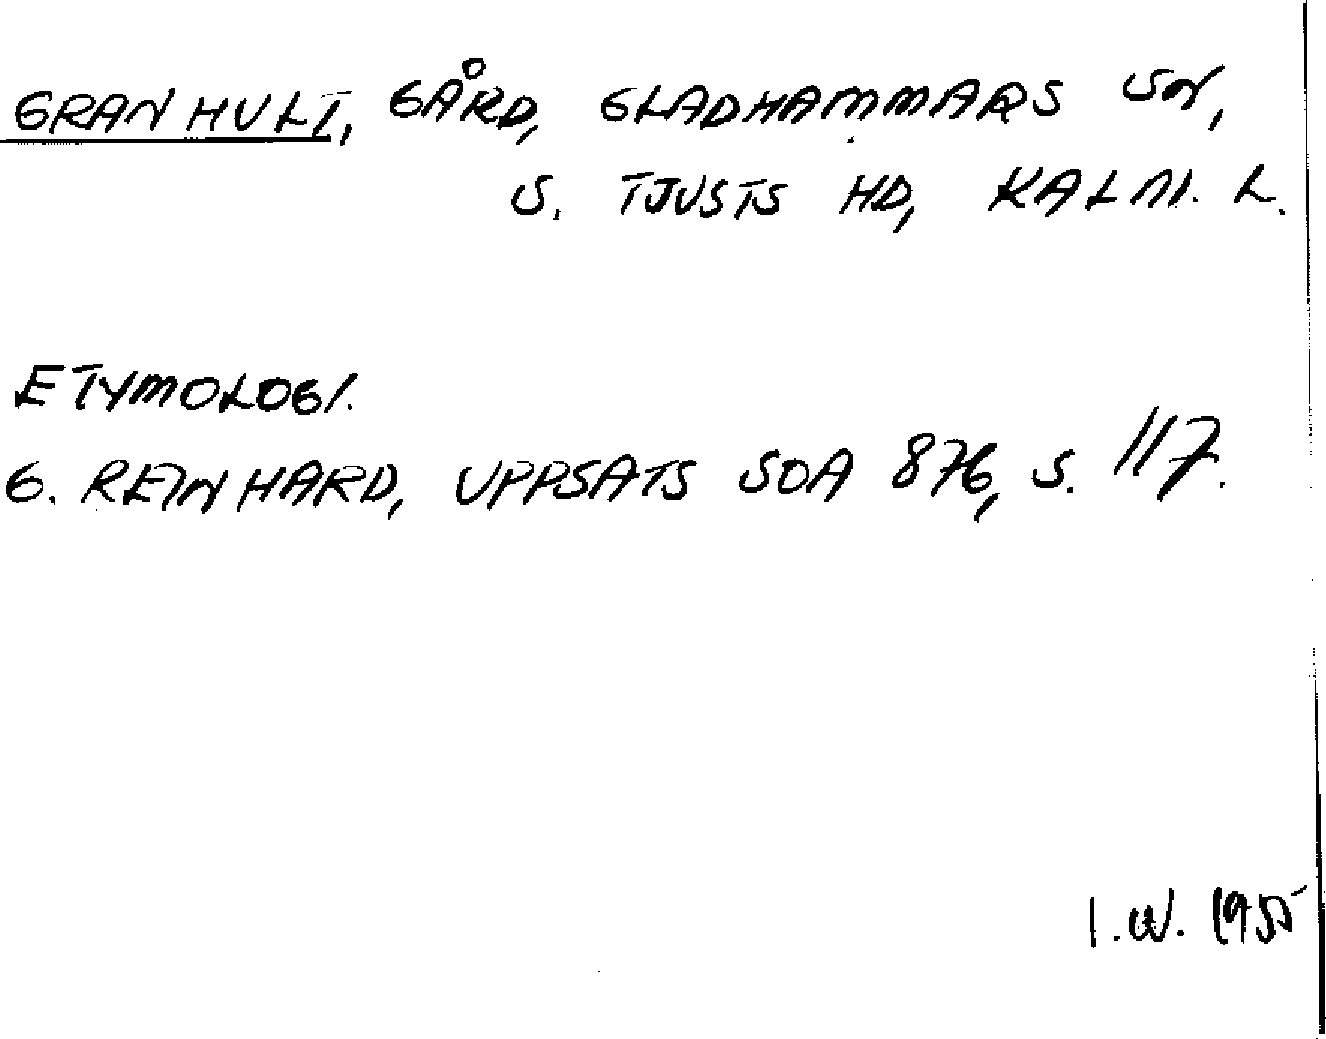 GRANHULT, GÅRD, GLADHAMMARS SN,
S. TJUSTS HD, KALM. L.
ETYMOLOGI.
G. REINHARD, UPPSATS SOA 876, S. 117.
I.W. 1955